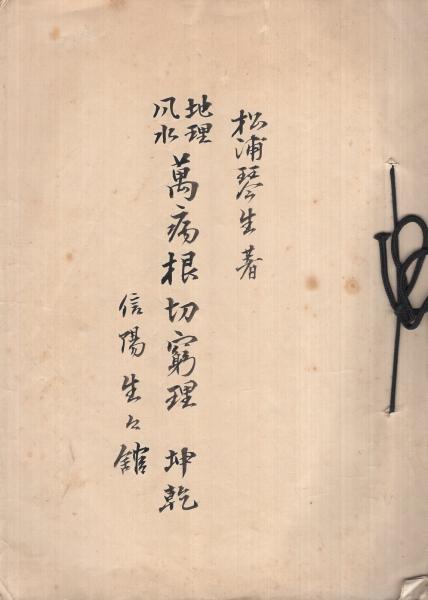 松浦琴生著
地理
風水
萬病根切窮理 乾坤
信陽生々館